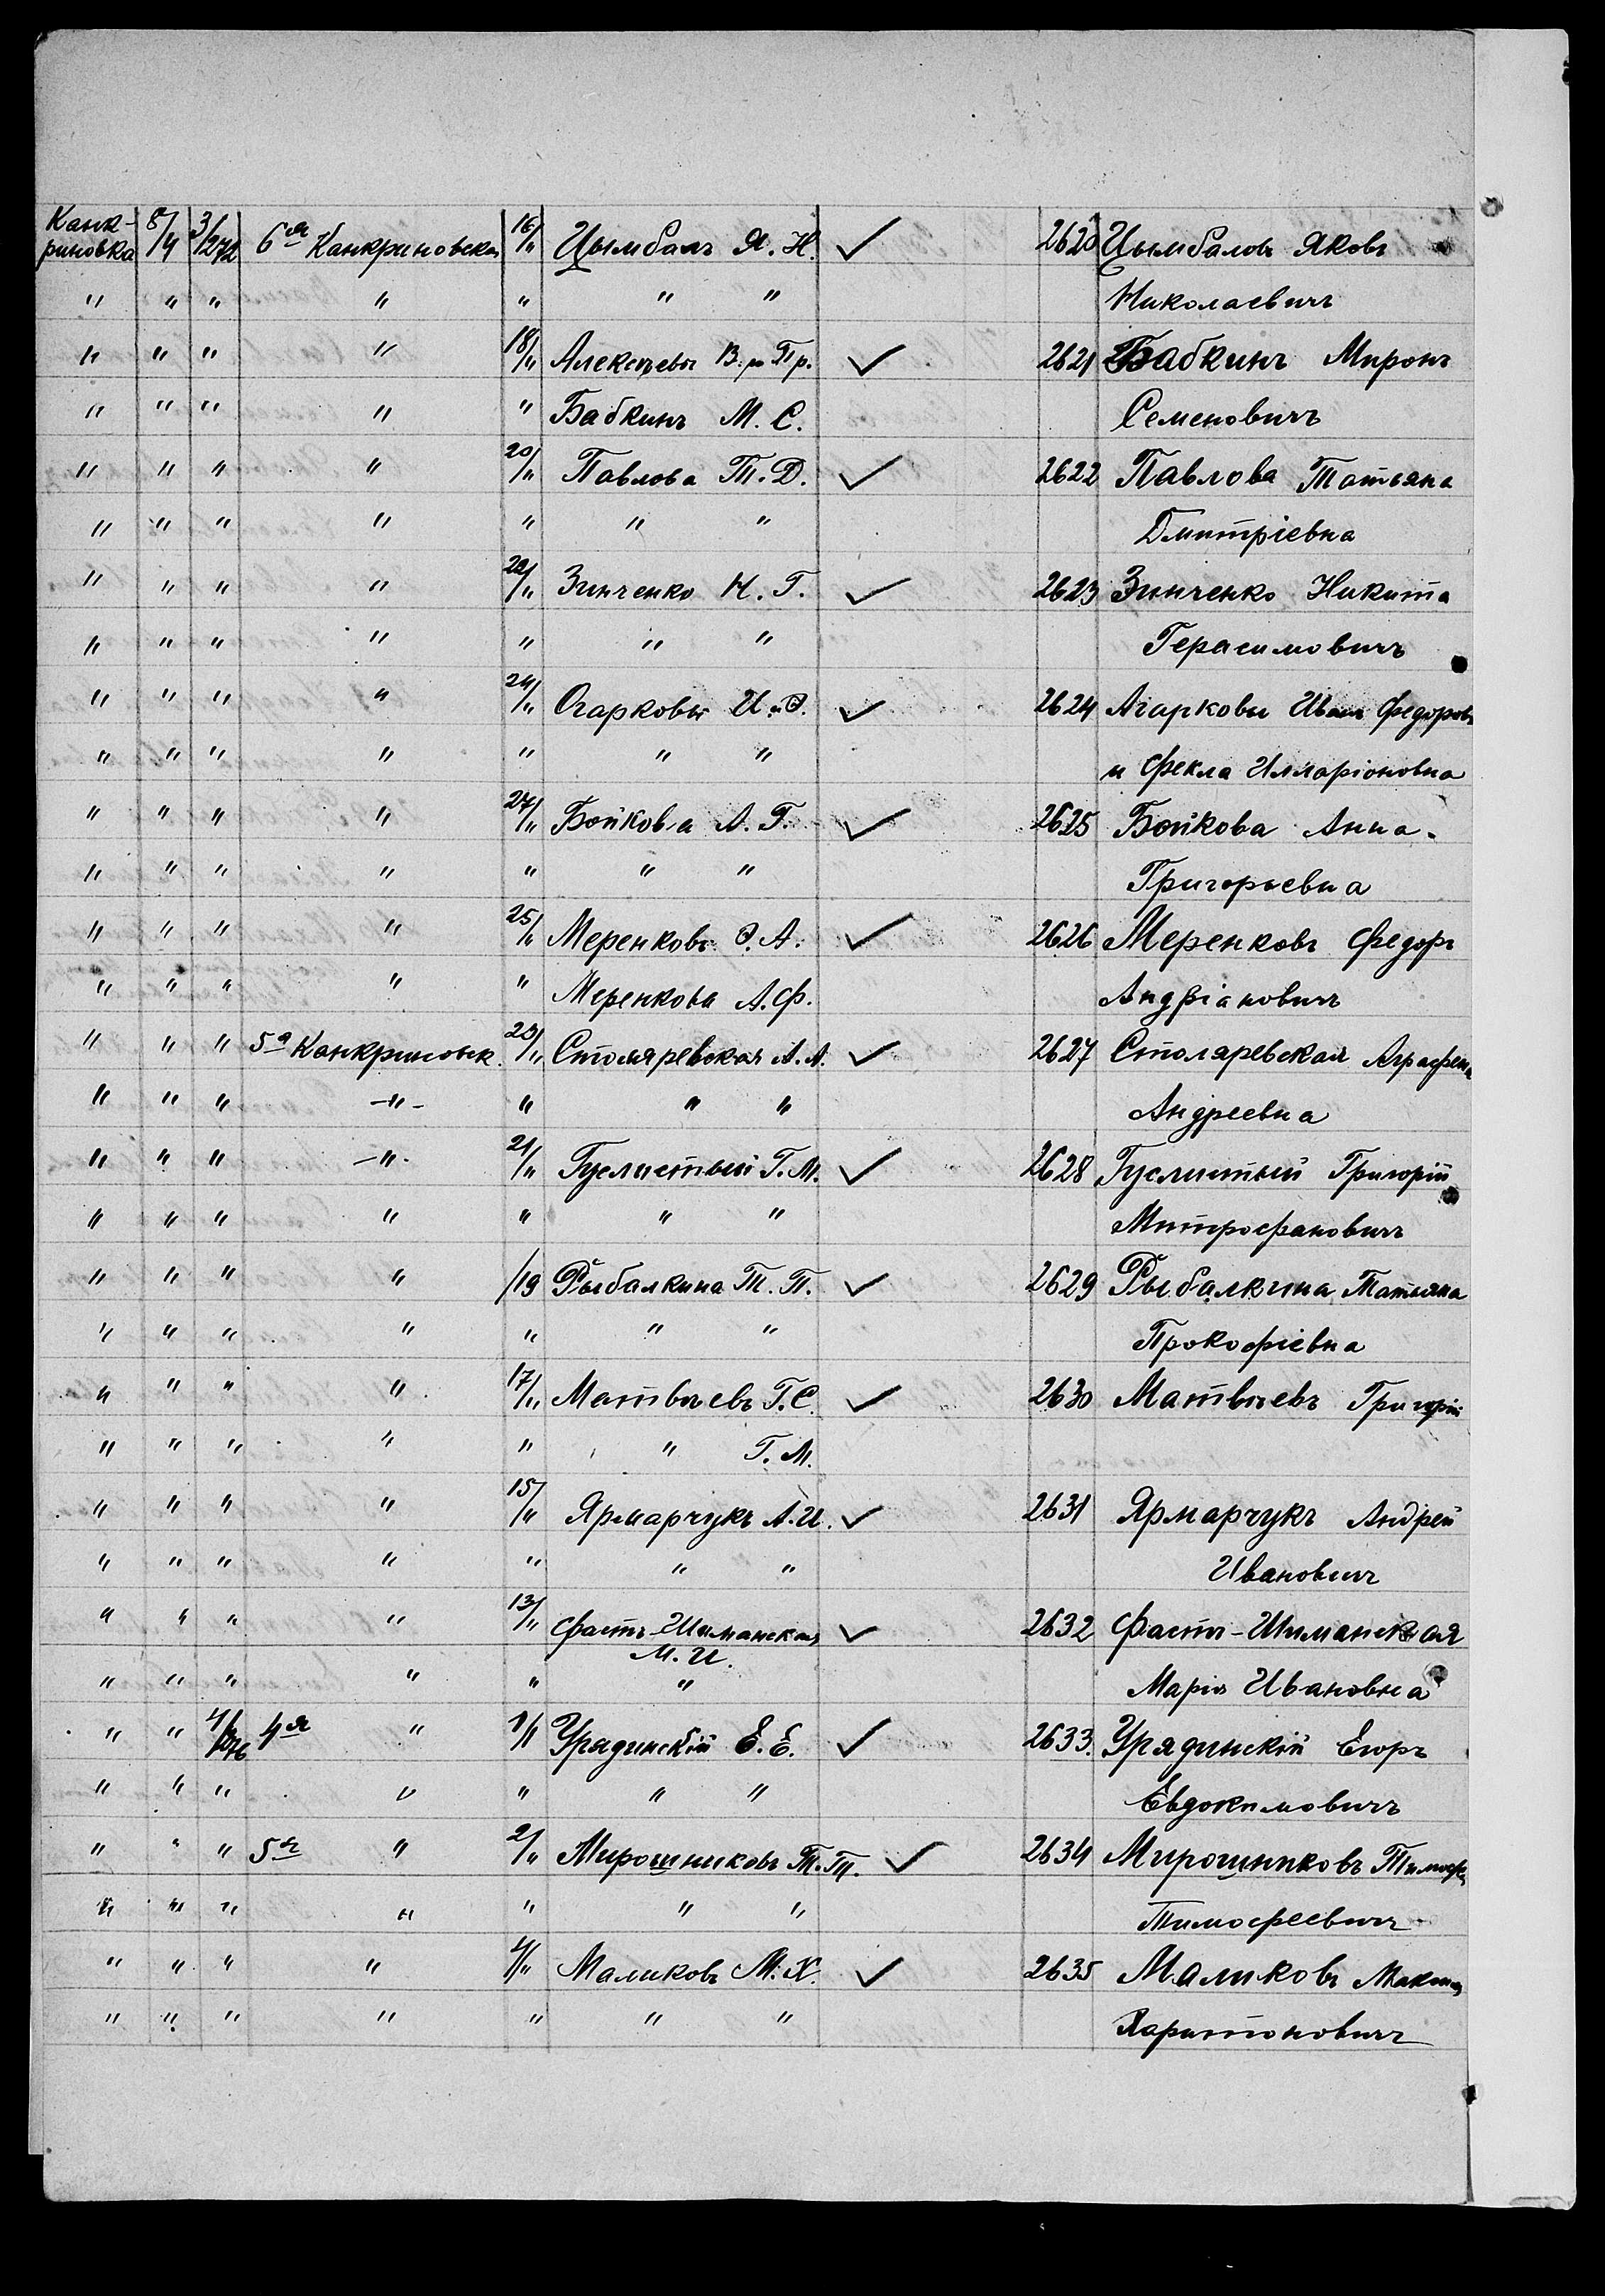 Канк-риновка 8/4 3/272 6ая Канкриновская 16/" Цымбалъ Я. Н. ✓ 2620 Цымбаловъ Яковъ
" " " " " " " Николаевичъ
" " " " 18/" Алексѣевы В. и Пр. ✓ 2621 Бабкинъ Миронъ
" " " " " Бабкинъ М. С. Семеновичъ
" " " " 20/" Павлова Т. Д. ✓ 2622 Павлова Татьяна
" " " " " " " Дмитріевна
" " " " 22/" Зинченко Н. Г. ✓ 2623 Зинченко Никита
" " " " " " " Герасимовичъ
" " " " 24/" Огарковы И. и Ѳ. ✓ 2624 Агарковы Иванъ Федоровъ
" " " " " " " и Фекла Илларіоновна
" " " " 27/" Бойкова А. Г. ✓ 2625 Бойкова Анна
" " " " " " " Григорьевна
" " " " 25/" Меренковъ Ѳ. А. ✓ 2626 Меренковъ Федоръ
" " " " " Меренкова А. Ф. Андріановичъ
" " " 5я Канкриновск. 23/" Столяревская А. А. ✓ 2627 Столяревская Аграфена
" " " -"- " " " Андреевна
" " " -"- 21/" Гуслистый Г. М. ✓ 2628 Гуслистый Григорій
" " " " " " " Митрофановичъ
" " " " /19 Рыбалкина Т. П. ✓ 2629 Рыбалкина Татьяна
" " " " " " " Прокофіевна
" " " " 17/" Матвѣевъ Г. С. ✓ 2630 Матвѣевъ Григорій
" " " " " " Г. М.
" " " " 15/" Ярмарчукъ А. И. ✓ 2631 Ярмарчукъ Андрей
" " " " " " " Ивановичъ
" " " " 13/" Фастъ-Шиманская М. И. ✓ 2632 Фастъ-Шиманская
" " " " " " Марія Ивановна
" " 4/276 4я " 1/1 Урядинскій Е. Е. ✓ 2633. Урядинскій Егоръ
" " " " " " " Евдокимовичъ
" " " 5я " 2/" Мирошниковъ Т. Т. ✓ 2634 Мирошниковъ Тимофей
" " " " " " " Тимофеевичъ
" " " " 4/" Маликовъ М. Х. ✓ 2635 Маликовъ Максимъ
" " " " " " " Харитоновичъ